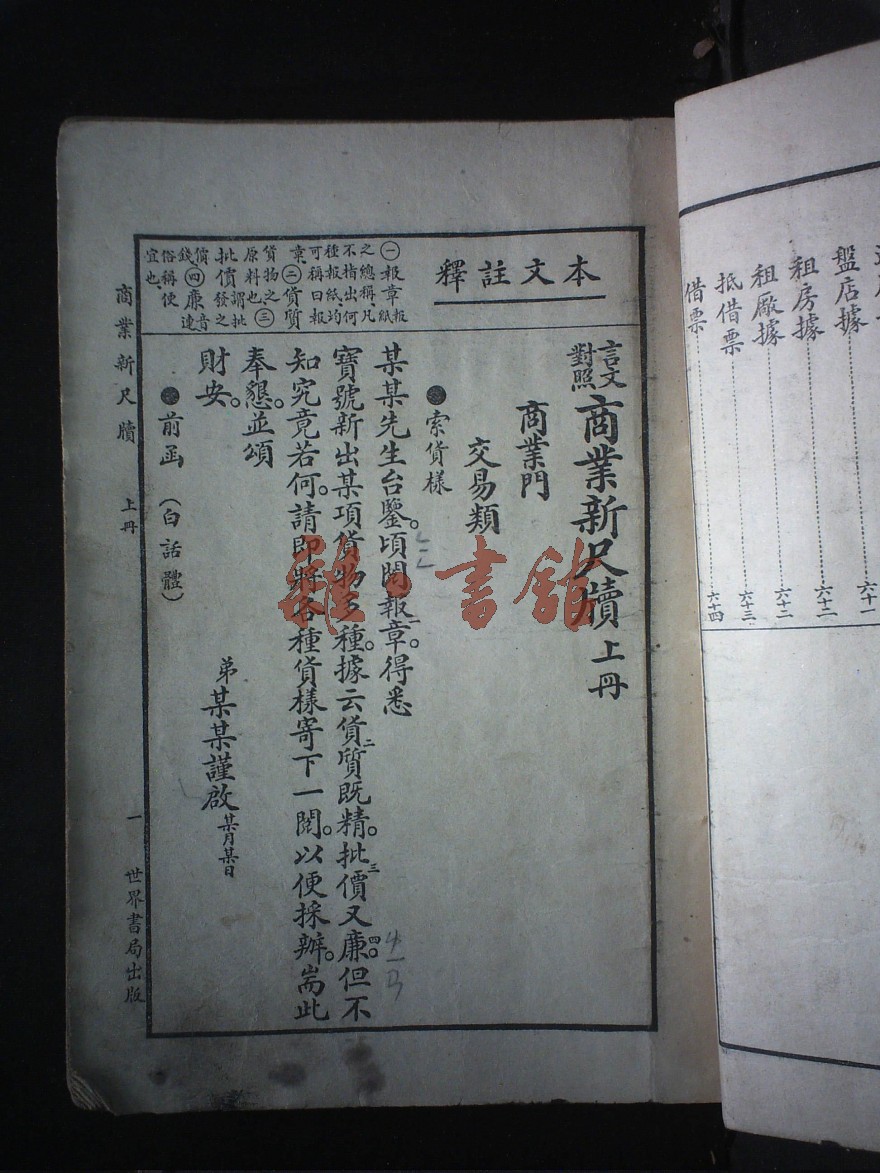 盤店據 六十一
租房據 六十二
租廠據 六十二
抵借票 六十三
借票 六十四
本文註釋
㊀報章 報紙
之總稱、凡
不指出何
種報紙均
可稱曰報
章㊁貨質
貨物之
原料也㊂
批價 謂批
發之
價㊃廉 音
錢 連
俗稱便
宜也、
言文對照商業新尺牘 上册
商業門
交易類
●索貨樣
某某先生台鑒。頃閱報章。一得悉
寶號新出某項貨物多種。據云貨二質既精。批三價又廉。四但不
知究竟若何。請即將各種貨樣寄下一閱。以便採辦。耑此
奉懇。並頌
財安。
弟某某謹啟 某月某日
●前函(白話體)
商業新尺牘 上册 一 世界書局出版
雅書館